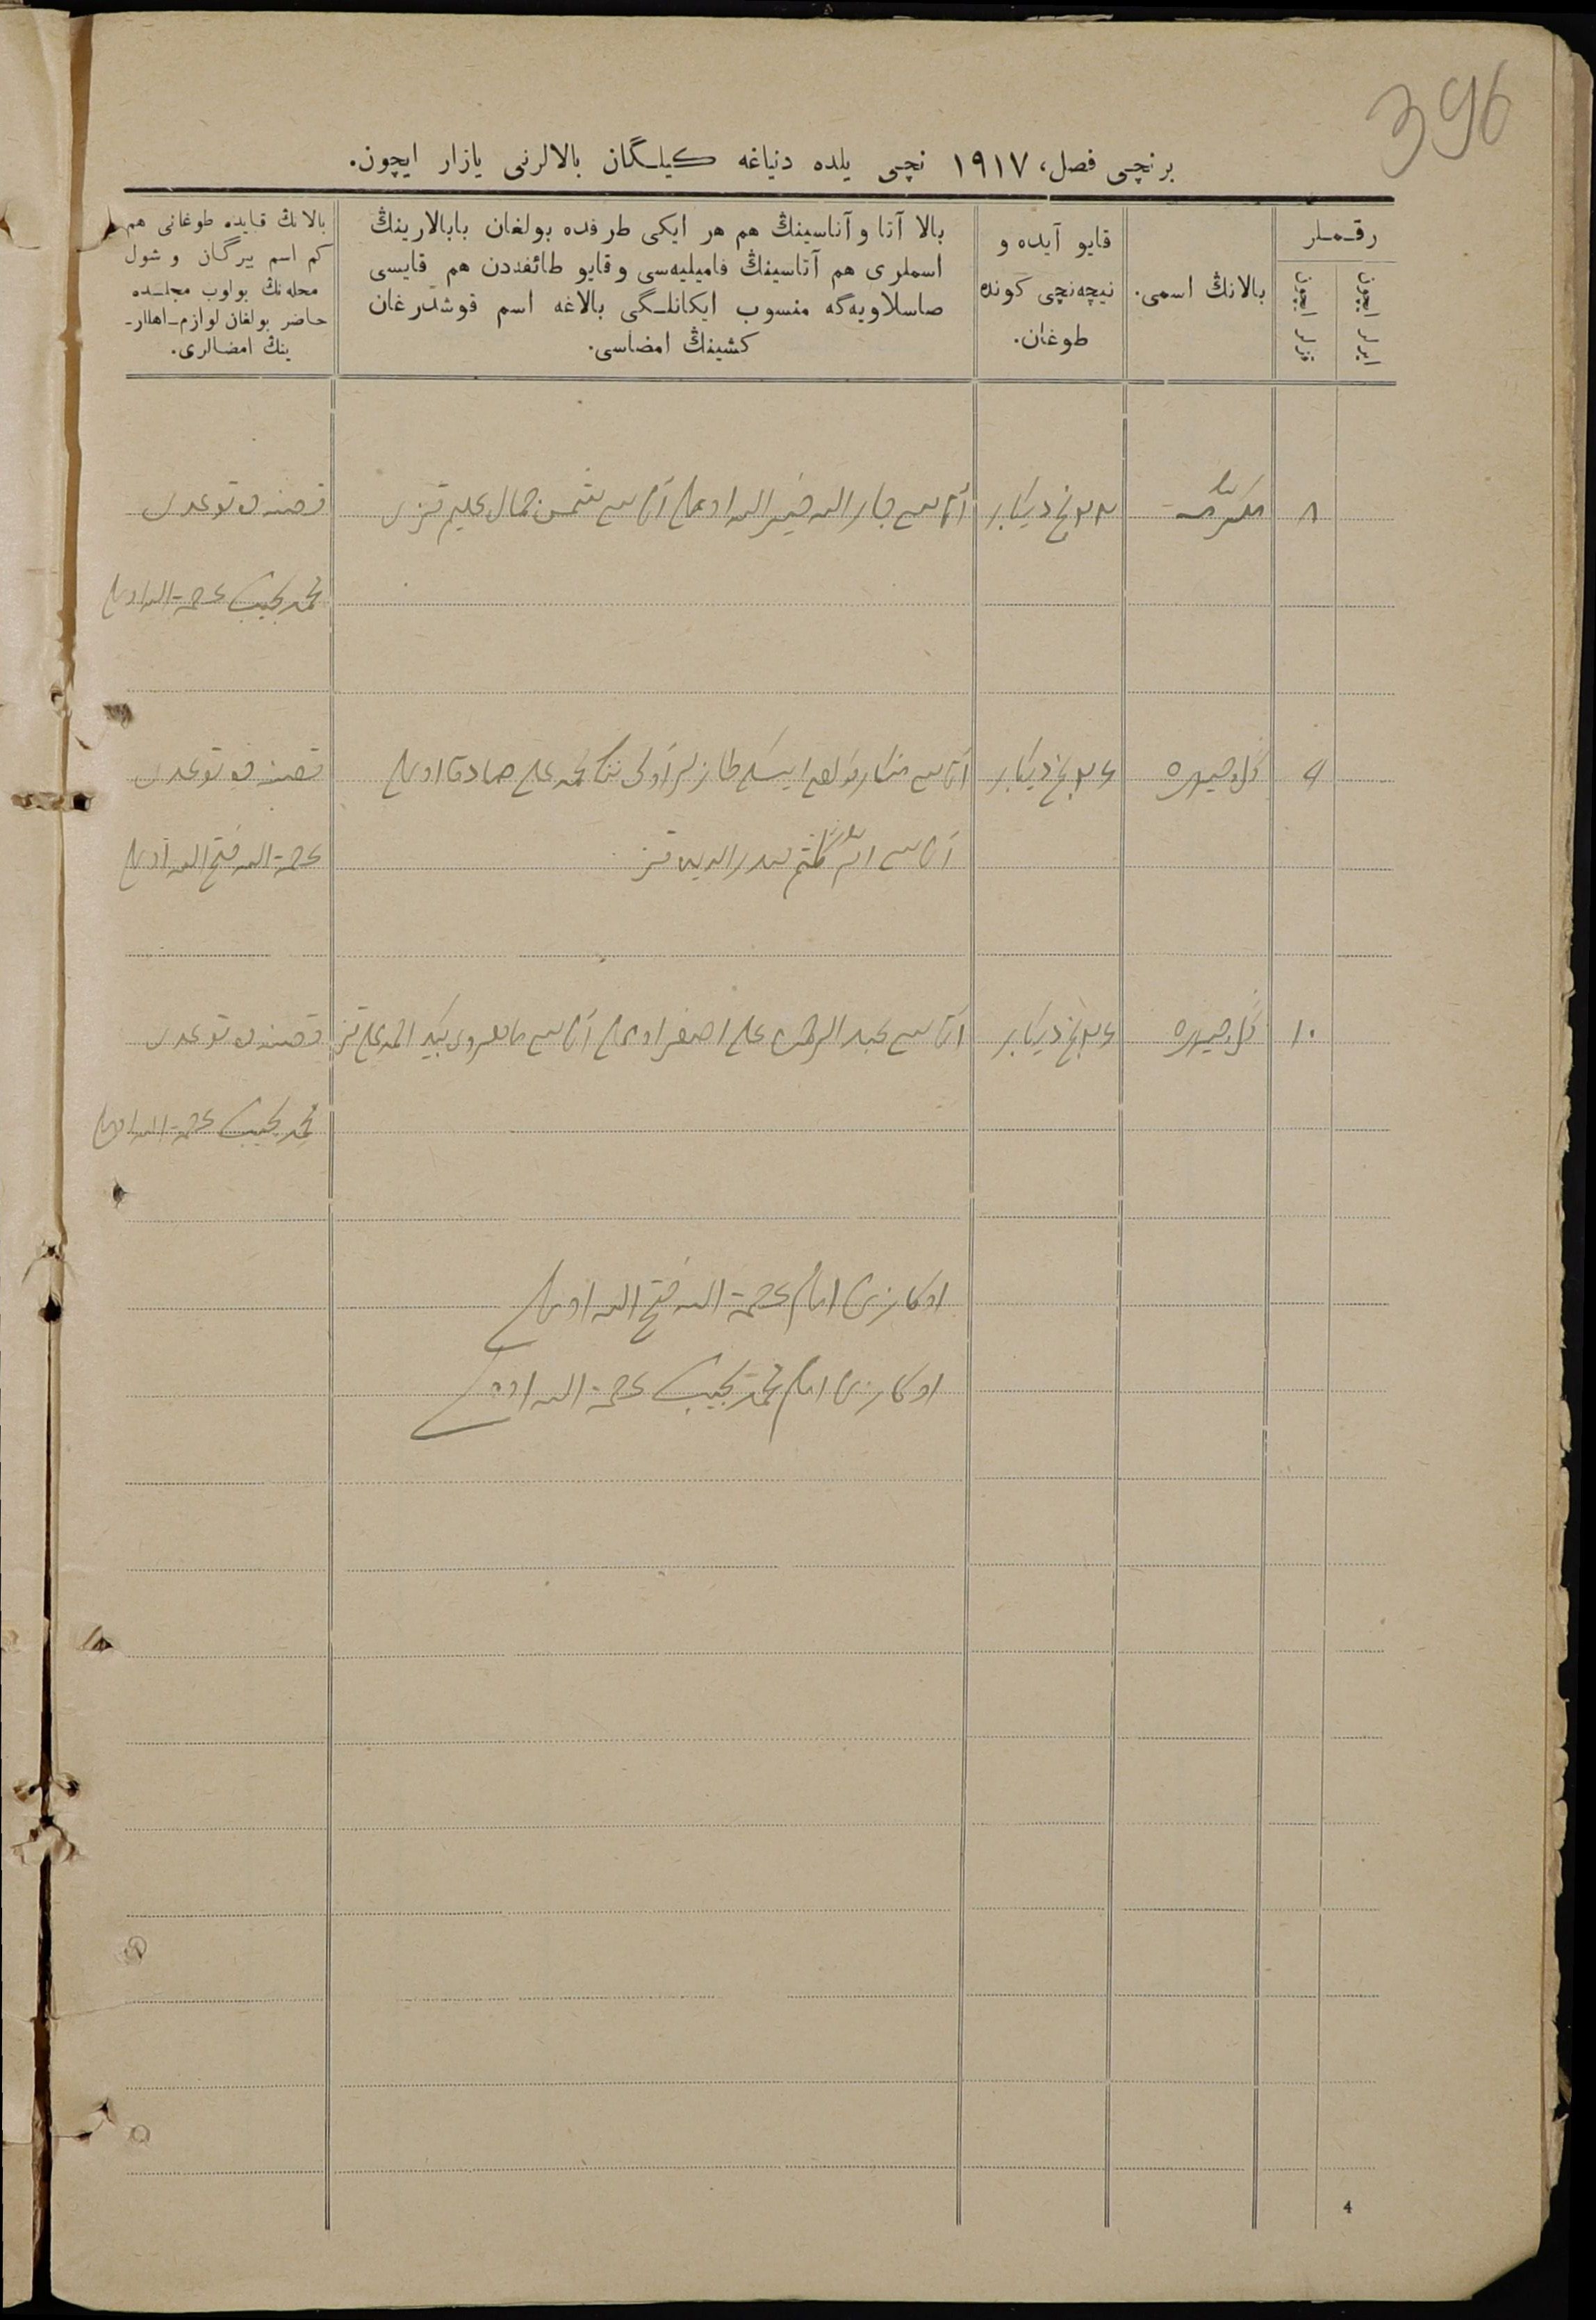 396
برنچی فصل، ١٩١٧ نچی یلده دنیاغه کیلـگان بالالرنی یازار ایچون.
رقـمـلر
ایرلر ایچون
قزلر ایچون
بالانڭ اسمی.
قایو آیده و
نیچه‌نچی کونده
طوغان.
بالا آتا و آناسینڭ هم هر ایکی طرفده بولغان بابالارینڭ
اسملری هم آتاسینڭ فامیلیه‌سی و قایو طائفه‌دن هم قایسی
صاسلاویه‌گه منسوب ایکانلـگی بالاغه اسم قوشدرغان
کشینڭ امضاسی.
بالانڭ قایده طوغانی هم
کم اسم بیرگان و شول
محله‌نڭ بواوب مجلـسده
حاضر بولغان لوازم ـ اهللار ـ
ینڭ امضالری.
٨ مکرمه ٢٣ نچی دیکابر آتاسی جار الله خیر الله اوغلی آناسی شمس جمال علیم قزی
محمد نجیب رحمة الله اوغلی
٩ گل چهره ٢٤ نچی دیکابر آتاسی محمد علی صادق اوغلی
آناسی ام کلثوم بدر الدین قز
رحمة الله فتح الله اوغلی
١٠ گل چهره ٢٤ نچی دیکابر آتاسی عبد الرحمن علی اصغر اوغلی آناسی احمد علی قز
محمد نجیب رحمة الله اوغلی
امام رحمة الله فتح الله اوغلی
امام محمد نجیب رحمة الله اوغلی
4